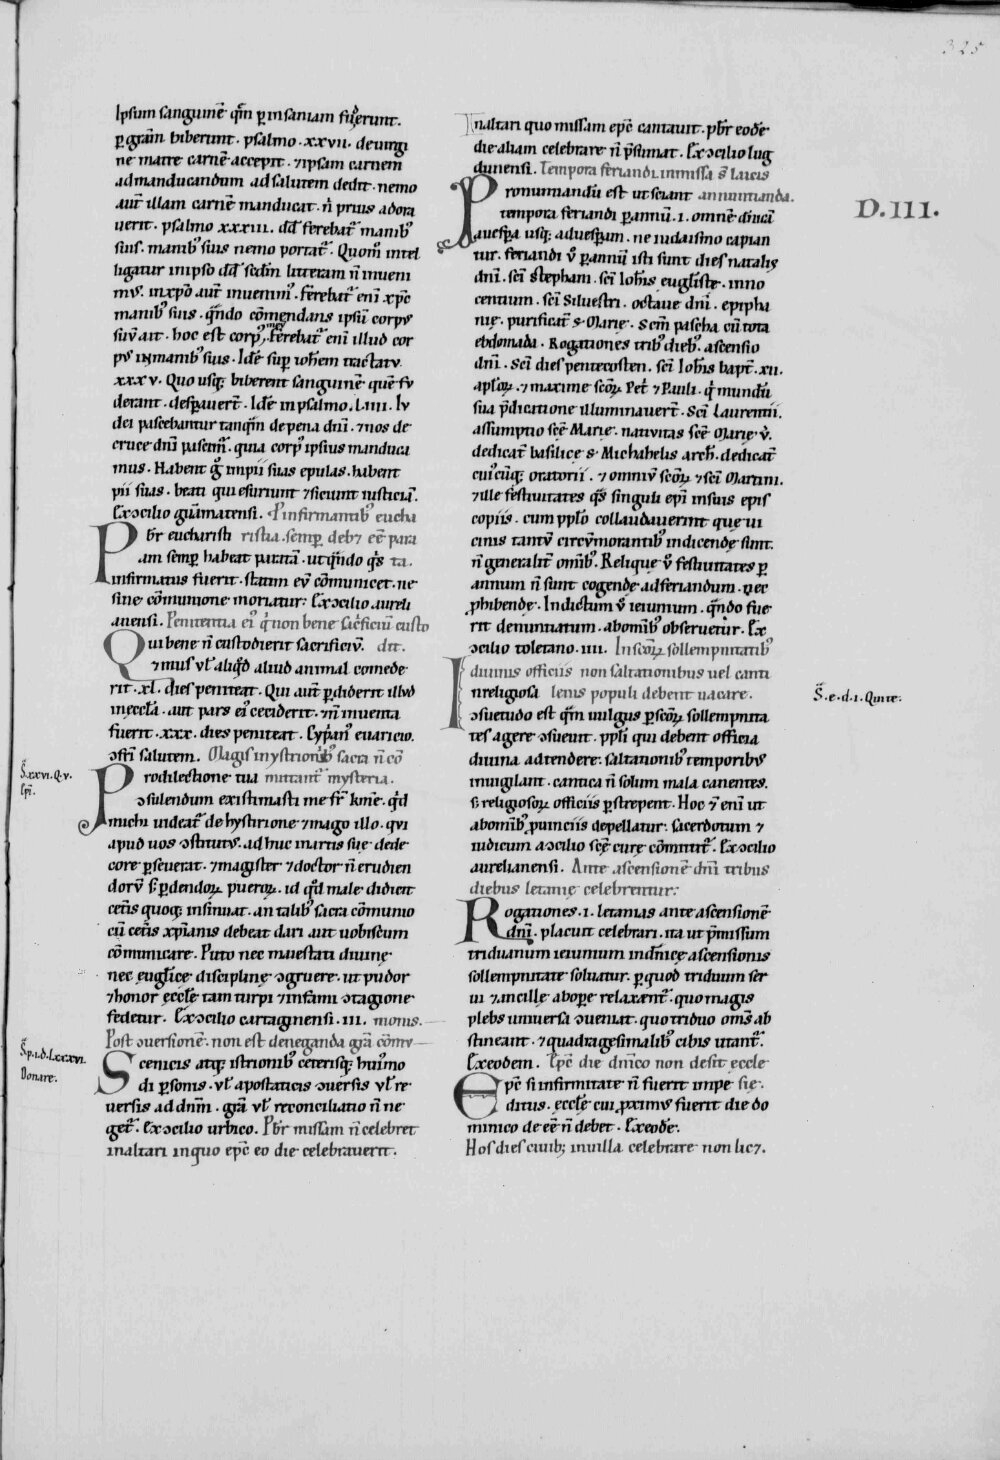 325
Ipsum sanguinē q̄m ꝑ insaniam fuđerunt.
ꝑ grām biberunt. psalmo. xxvii. de uirgi
ne matre carnē accepit. ⁊ ipsam carnem
ad manducandum ad salutem dedit. nemo
aut̄ illam carnē manducat. n̄ prius adora
uerit. psalmo xxxiii. dđ ferebat᷑ manibꝰ
suis. manibꝰ suis nemo portat᷑. Quom̊ intel
ligatur in ipso dđ scd̄m litteram n̄ inueni
mꝰ. in xp̄o aut̄ inuenimꝰ. ferebat᷑ eni xp̄c
manibꝰ suis. q̄ndo cōmendans ipsū corpꝰ
suū ait. hoc est corpꝰ meū. Ferebat᷑ eni illud cor
pꝰ in manibꝰ suis. Idē suꝑ ioh̄em tractatu
xxxv. Quo usq; biberent sanguinē quē fu
derant. desꝑauert̄. Idē in psalmo. Liiii. Iu
dei pascebantur tanq̄m de pena dn̄i. ⁊ nos de
cruce dn̄i pascim᷑. quia corpꝰ ipsius manduca
mus. Habent ḡ impii suas epulas. habent
pii suas. beati qui esuriunt ⁊ siciunt iusticiā.
Ex ↄcilio guāmatensi. P̱ infirmantibꝰ eucha
Pbr̄ eucharisti ristia. semꝑ deb⁊ eē para
am semꝑ habeat paratā. ut q̄ndo q̇s ta.
infirmatus fuerit. statim eū cōmunicet. ne
sine cōmunione moriatur: Ex ↄcilio aureli
anensi. Penitentia eiꝰ q̇ non bene sac̓ficiū custo
Qui bene n̄ custodierit sacrificiū. dit.
⁊ mus uł aliq̇d aliud animal comede
rit. xl. dies peniteat. Qui aut̄ ꝑdiderit illud
in eccl̄a. aut pars eiꝰ ceciderit. ⁊ n̄ inuenta
fuerit. xxx. dies peniteat. Cyp̓anꝰ euaricio.
ↄfr̄i salutem. Magis ⁊ hystrionibꝰ sacra n̄ cō
Pro dilectione tua mittant᷑ mysteria.
ↄsulendum existimasti me fr̄ kmē. q̇d
michi uideat᷑ de hystrione ⁊ mago illo. qui
apud uos ↄstitutꝰ. adhuc in artis suę dede
core ꝑseuerat. ⁊ magister ⁊ doctor n̄ erudien
dorū s; ꝑdendoꝝ pueroꝝ. id q̇d male didicit
cet̓is quoq; insinuat. an talibꝰ sacra cōmunio
cū cet̓is xp̄ianis debeat dari aut uobiscum
cōmunicare. Puto nec maiestati diuinę
nec euglīcę disciplinę ↄgruere. ut pudor
⁊ honor eccl̄ę tam turpi ⁊ infami ↄtagione
fedetur. Ex ↄcilio cartaginensi. iii. monis.
Post ↄuersionē. non est deneganda grā cōmu
Scenicis atq; istrionibꝰ ceterisq; hui⁹mo
di ꝑsonis. uł apostaticis ↄuersis uł re
uersis ad dn̄m. grā uł reconciliatio n̄ ne
get᷑. Ex ↄcilio urbico. Pbr̄ missam n̄ celebret
in altari in quo ep̄c eo die celebrauerit.
S̄.xxvi.Q.v.
S̄.p.i.d.Lxxxvi.
Donare.
In altari quo missam ep̄c cantauit. pbr̄ eodē
die aliam celebrare n̄ p̄sumat. Ex ↄcilio lug
dunensi. Tempora feriandi in missa s̄ laicis
Pronunciandū est ut sciant annuntianda.
tempora feriandi ꝑ annū. i. omnē dn̄icā
a uespa usq; ad uesꝑam. ne iudaismo capian
tur. feriandi v̊ ꝑ annū isti sunt dies natalis
dn̄i. sc̄i Stephani. sc̄i Ioh̄is euglīstę. inno
centum. sc̄i Siluestri. octaue dn̄i. epipha
nię. purificat̄ s. Marię. sc̄m pascha cū tota
ebdomada. Rogationes tribꝰ diebꝰ. ascensio
dn̄i. sc̄i dies pentecosten. sc̄i Ioh̄is bapt̄. xii.
apl̄oꝝ. ⁊ maxime sc̄oꝝ Pet̓ ⁊ Pauli. q̇ mundū
sua p̄dicatione illuminauert̄. Sc̄i Laurentii.
assumptio sc̄ę Marię. natiuitas sc̄ę Marię v̊.
dedicat̄ basilicę s. Michahelis arch̄. dedicat̄
cuiꝰcūq; oratorii. ⁊ omniū sc̄oꝝ ⁊ sc̄i Martini.
⁊ ille festiuitates q̄s singuli ep̄i in suis epis
copiis. cum ppl̄o collaudauerint que ui
cinis tantū circūmorantibꝰ indicendę sunt.
n̄ generalit̄ omībꝰ. Reliquę v̊ festiuitates ꝑ
annum n̄ sunt cogendę ad feriandum. nec
ꝓhibendę. Indictum v̊ ieiunium. q̄ndo fue
rit denuntiatum. ab omībꝰ obseruetur. Ex
ↄcilio toletano. iiii. In sc̄oꝝ sollempnitatibꝰ
diuinis officiis non saltationibus uel canti
Inreligiosa lenis populi debent uacare.
ↄsuetudo est q̄m uulgus ꝑ sc̄oꝝ sollempnita
tes agere ↄsueuit. ppl̄i qui debent officia
diuina adtendere. saltationibꝰ temporibꝰ
inuigilant. cantica n̄ solum mala canentes.
s; religiosoꝝ officiis ꝑstrepent. Hoc ⁊̄ eni ut
ab omībꝰ ꝓuinciis depellatur: sacerdotum ⁊
iudicum a ↄcilio sc̄ę curę cōmittit᷑. Ex ↄcilio
aurelianensi. Ante ascensionē dn̄i tribus
diebus letanię celebrentur:
Rogationes. i. letanias ante ascensionē
dn̄i. placuit celebrari. ita ut p̄missum
triduanum ieiunium in dn̄icę ascensionis
sollempnitate soluatur. ꝑ quod triduum ser
ui ⁊ ancillę ab oꝑe relaxent᷑. quo magis
plebs uniuersa ↄueniat. quo triduo om̄s ab
stineant. ⁊ quadragesimalibꝰ cibis utant᷑.
Ex eodem. Ep̄c die dn̄ico non desit ecclę
Ep̄c si infirmitate n̄ fuerit impe się.
ditus. eccl̄ę cui ꝓximꝰ fuerit die do
minico deeē n̄ debet. Ex eodē.
Hos dies ciuib; in uilla celebrare non lic⁊.
D.III.
S̄.e.d.1.Quite.